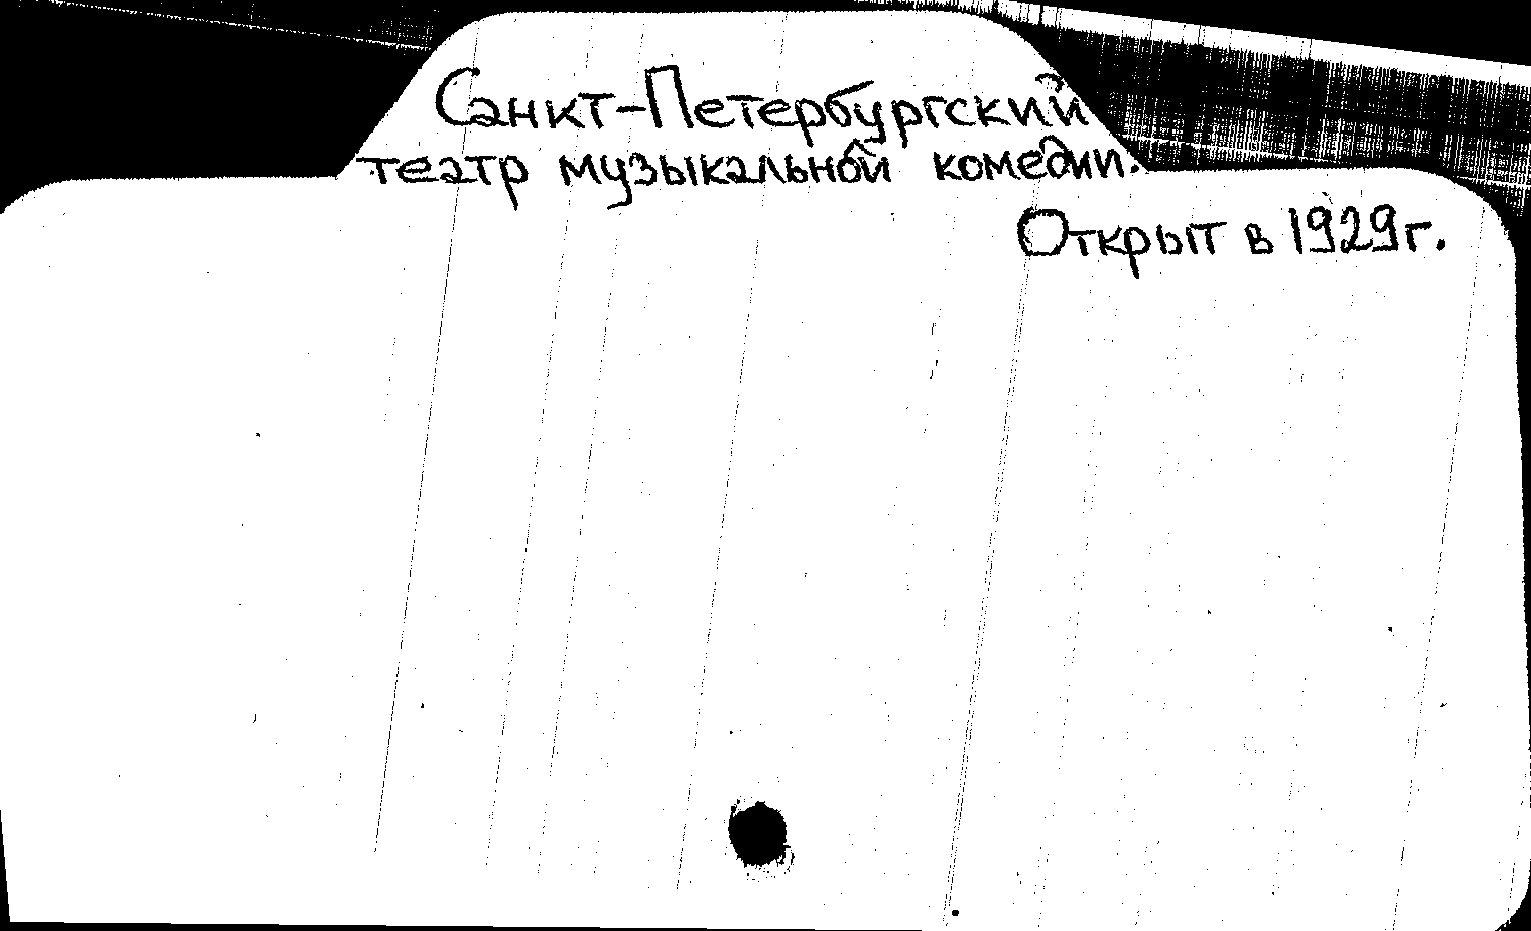 Санкт-Петербургский
театр музыкальной комедии.
Открыт в 1929г.